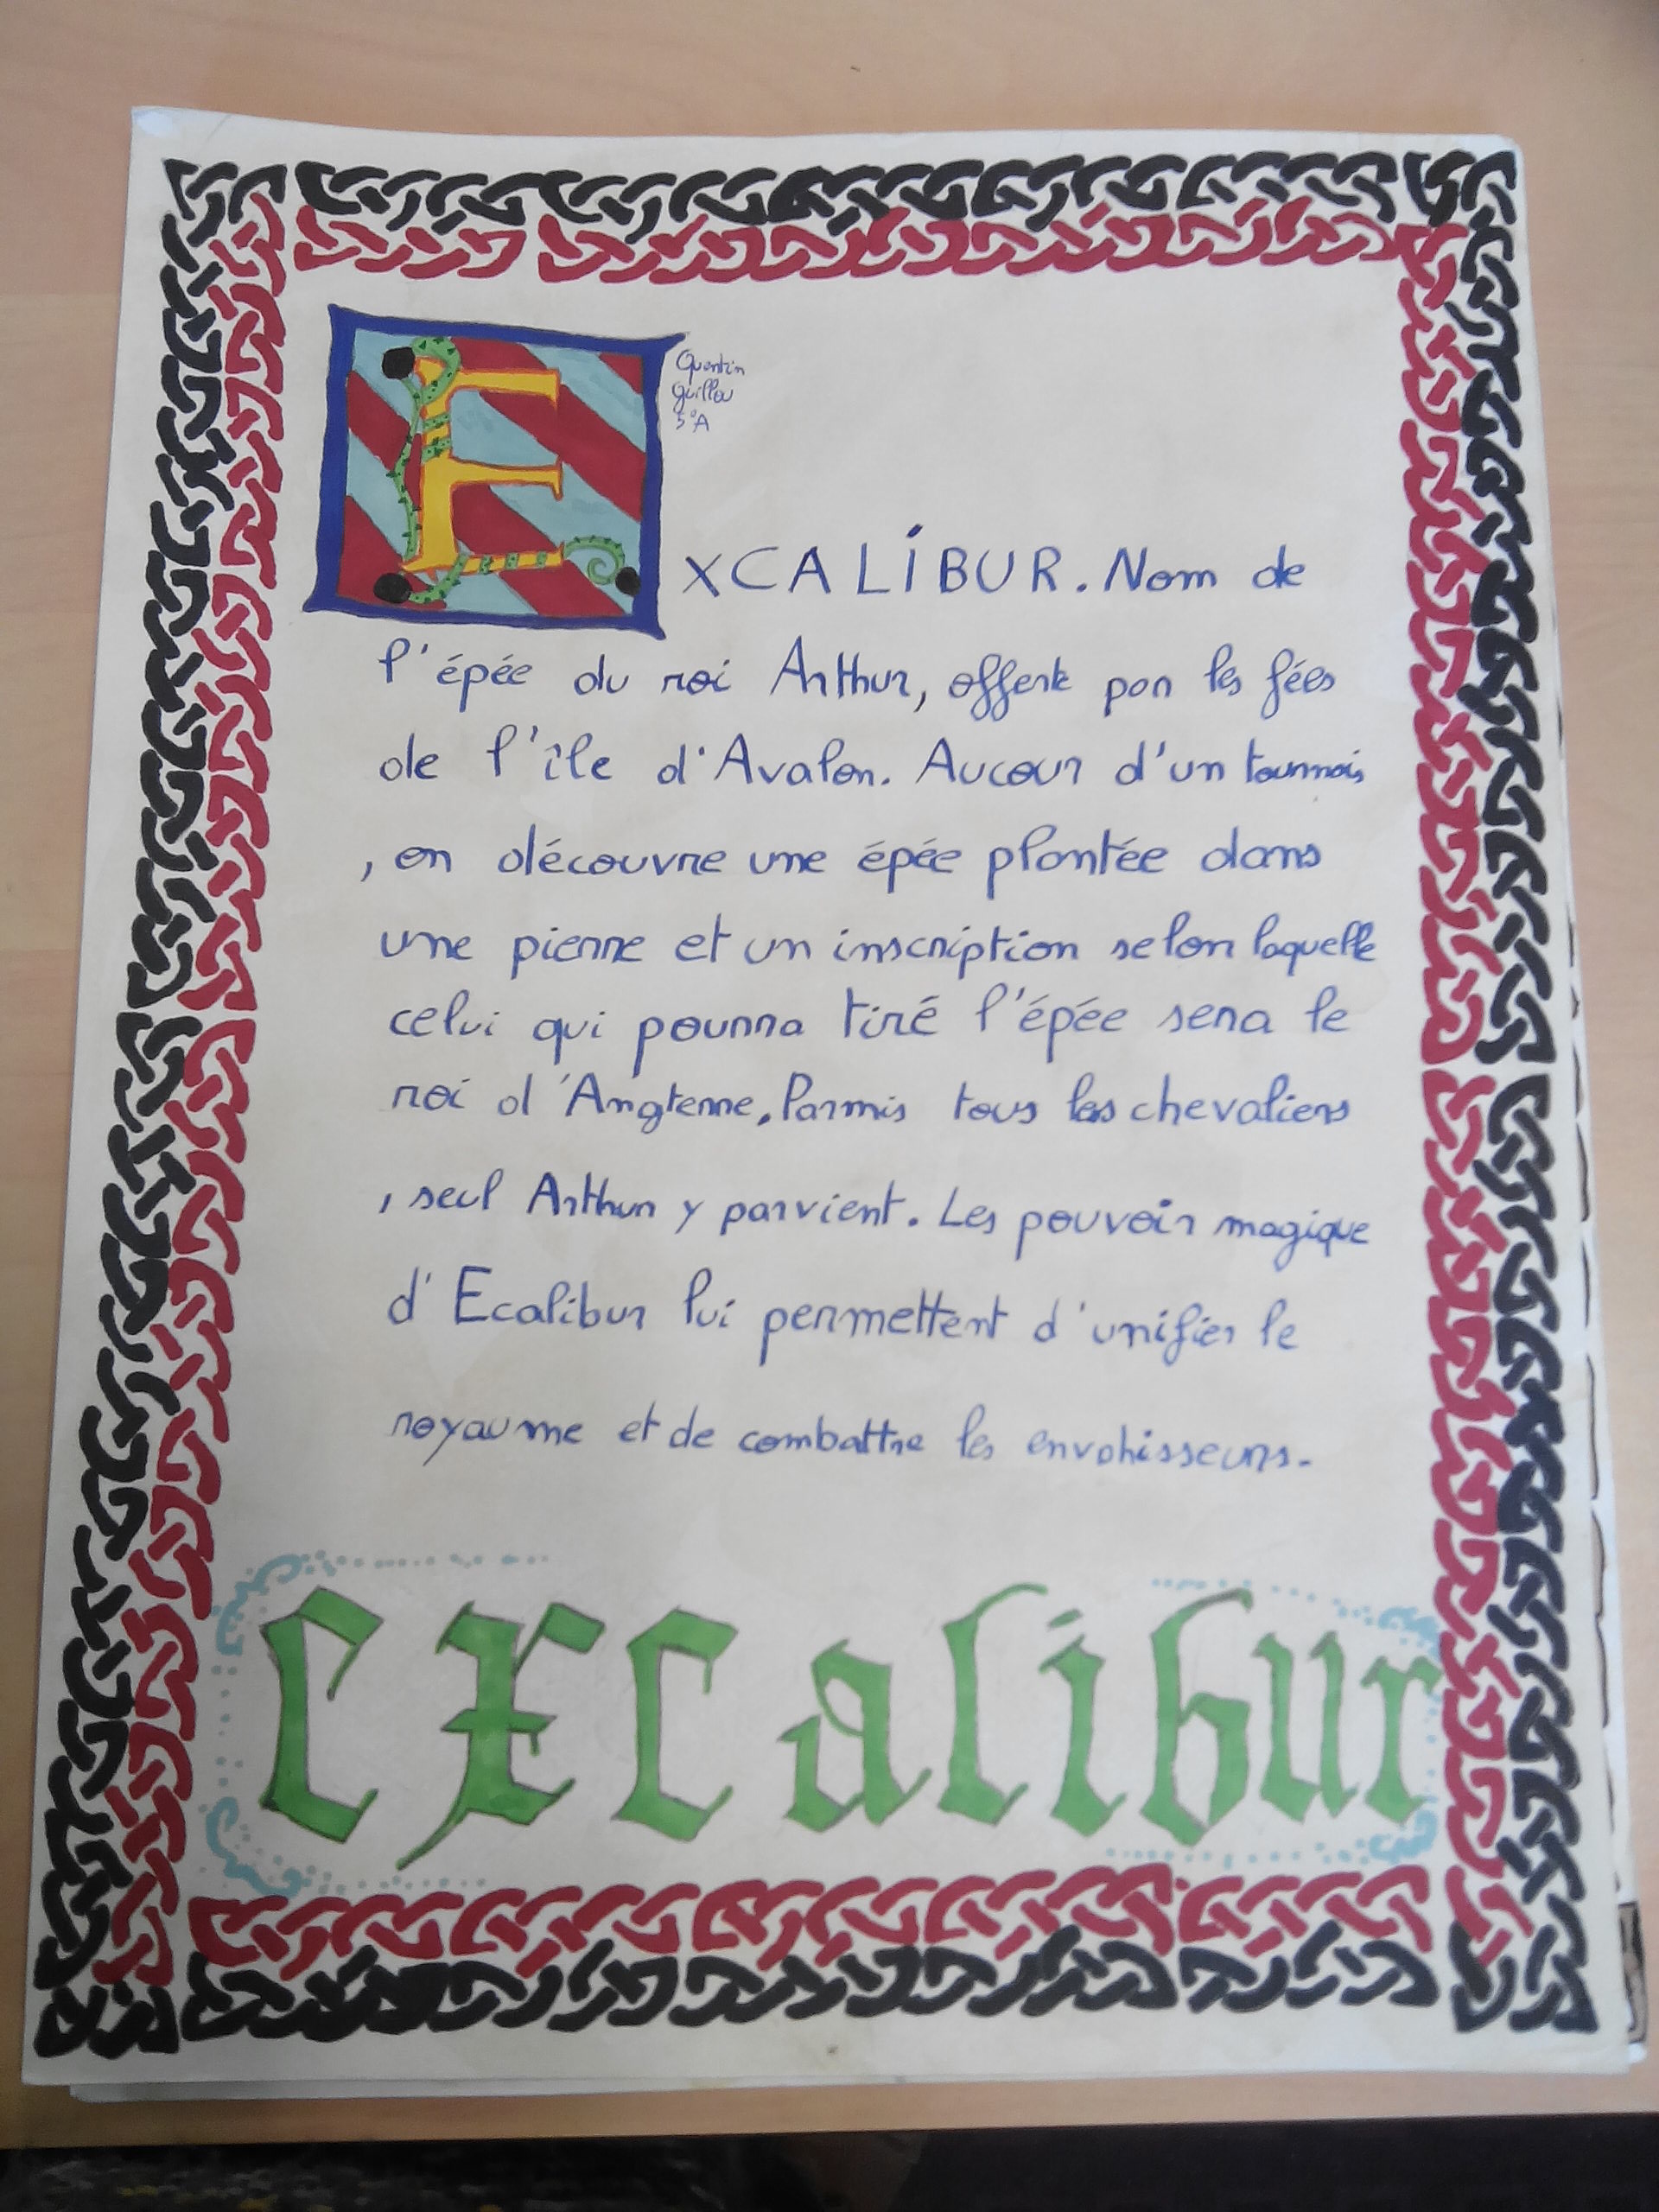 Quentin
Guillou
5°A
EXCALIBUR. Nom de
l'épée du roi Arthur, offerte par les fées
de l'île d'Avalon. Aucour d'un tournois
, on découvre une épée plantée dans
une pierre et un inscription selon laquelle
celui qui pourra tiré l'épée sera le
roi d'Angterre. Parmis tous les chevaliers
, seul Arthur y parvient. Les pouvoir magique
d'Ecalibur lui permettent d'unifier le
royaume et de combattre les envahisseurs.
excalibur